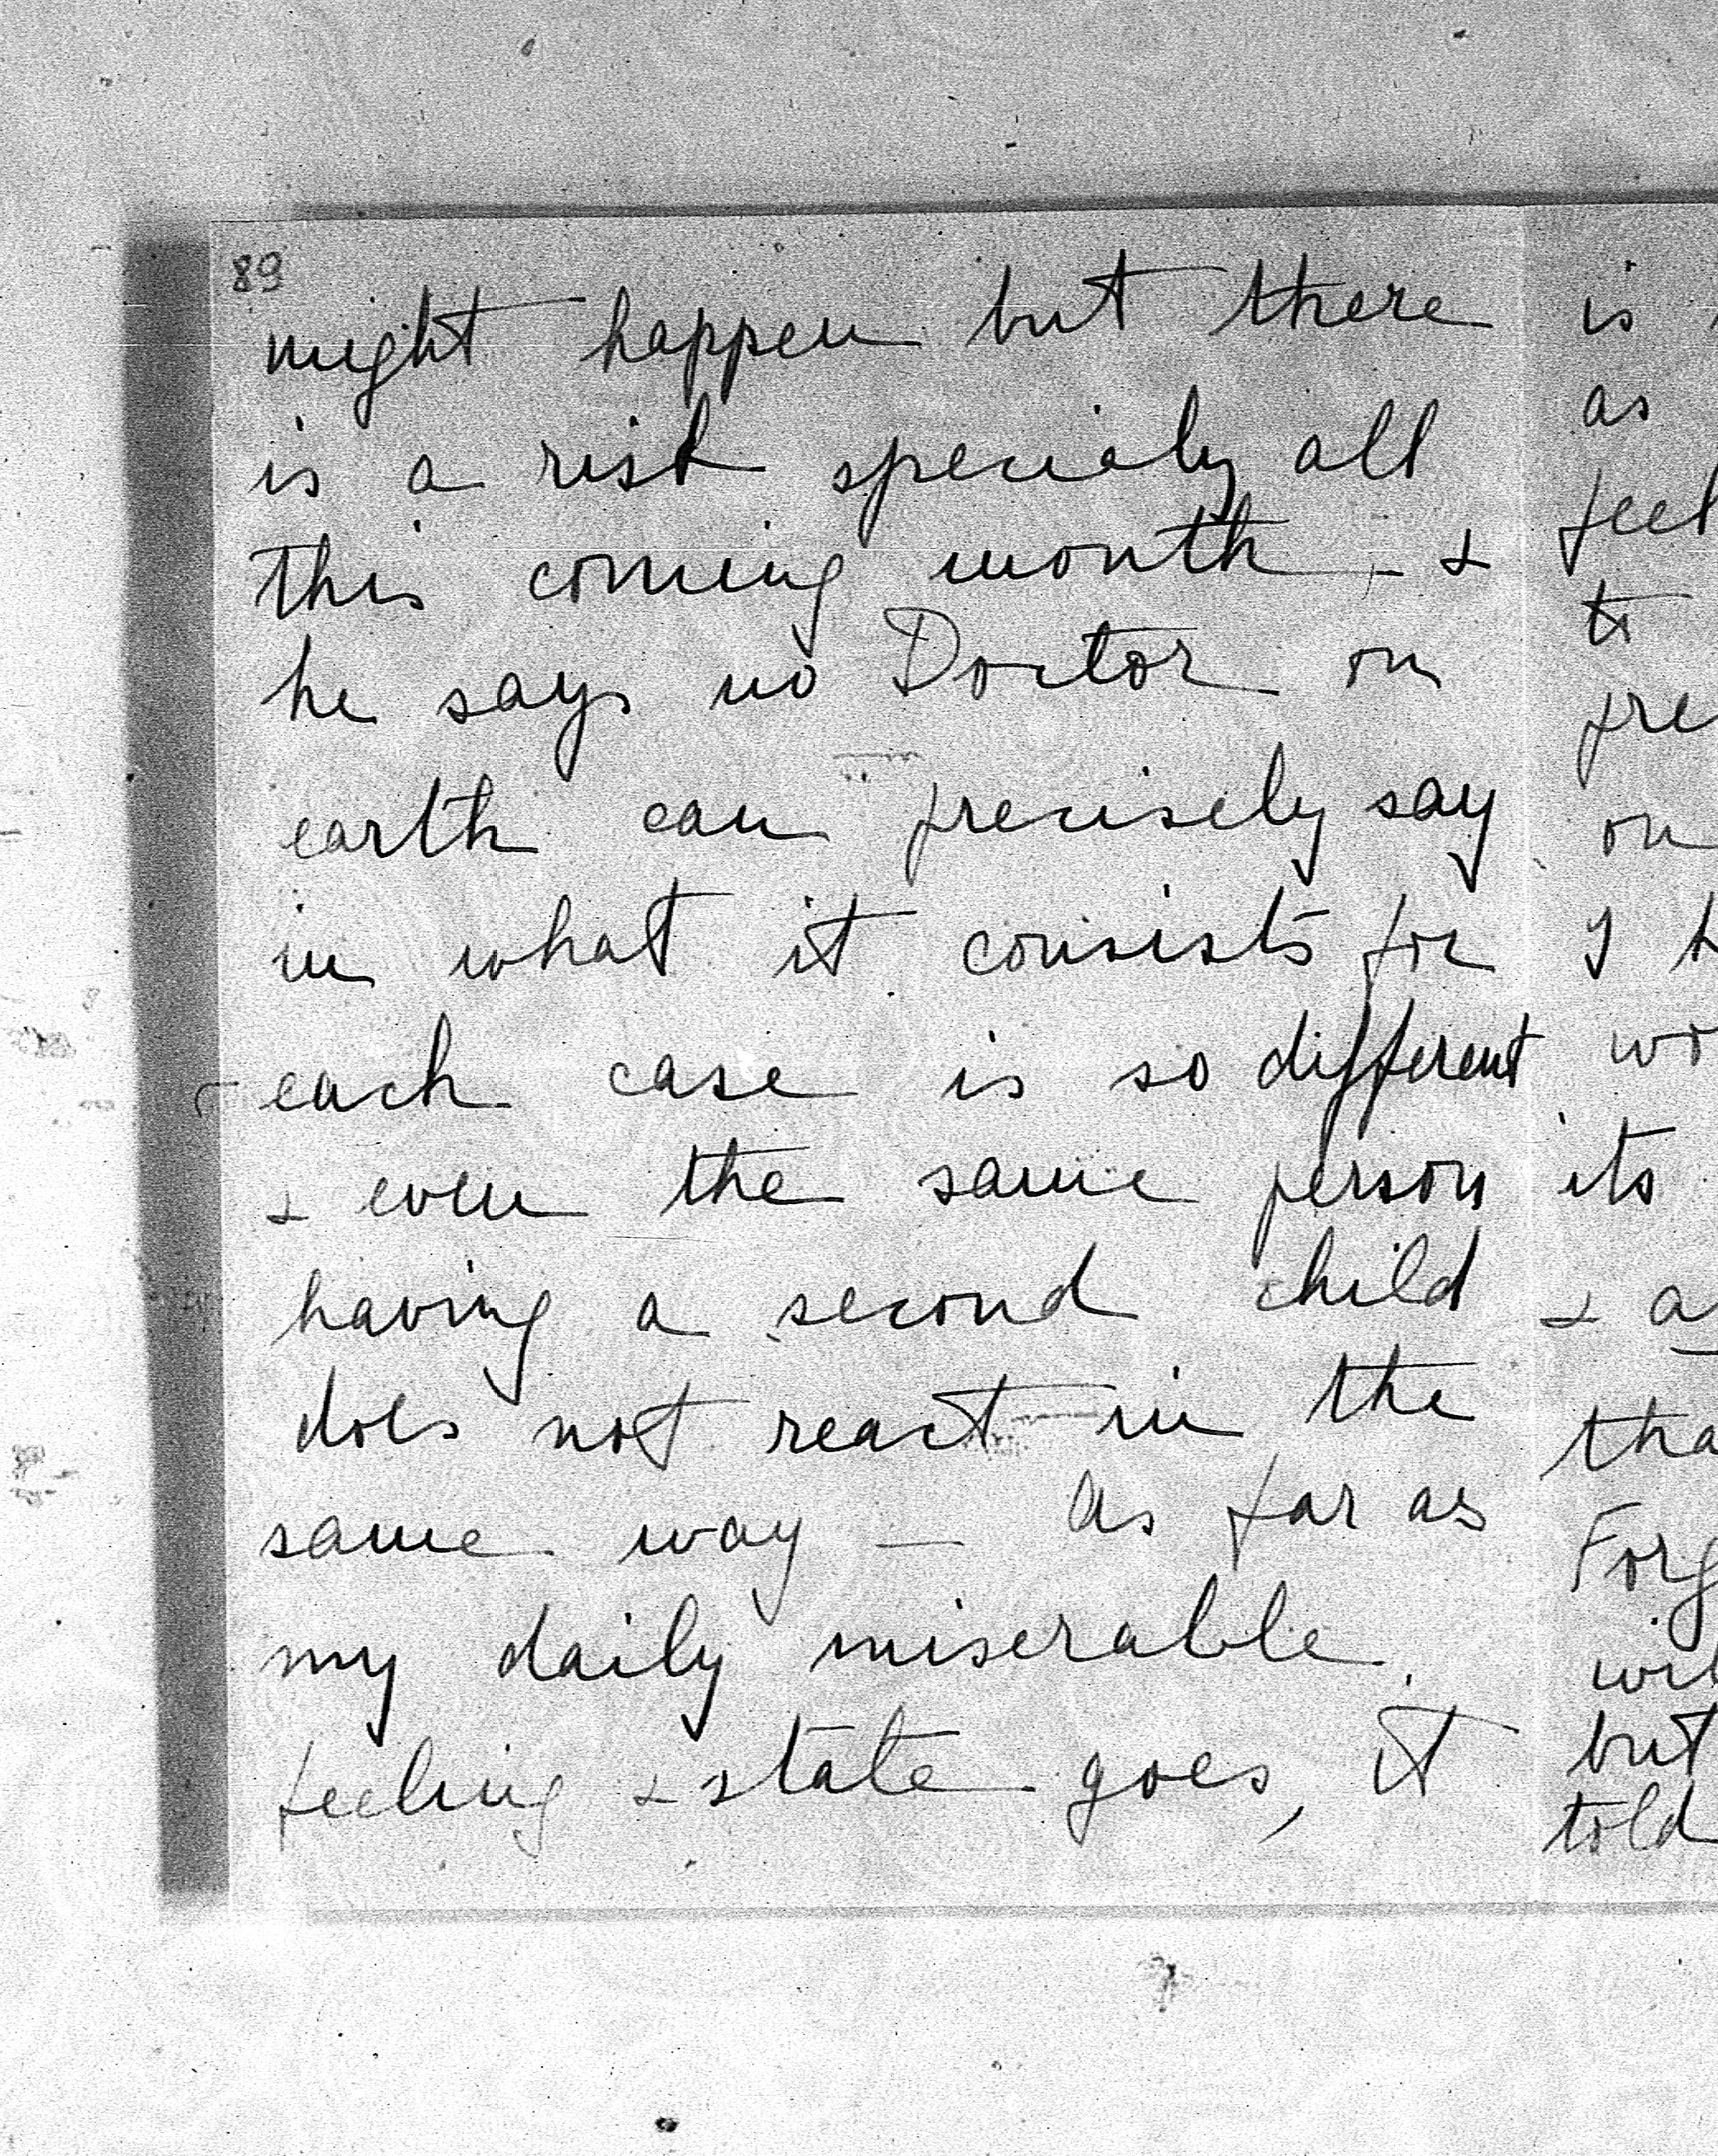 89
might happen but there
is a risk specialy all
this coming month - &
he says no Doctor on
earth can precisely say
in what it consists for
each case is so different
& even the same person
having a second child
does not react in the
same way — As far as
my daily miserable
feeling & state goes, it
is
as
feel
to
fre
on
I
wo
its
& a
tha
Forg
wil
but
told